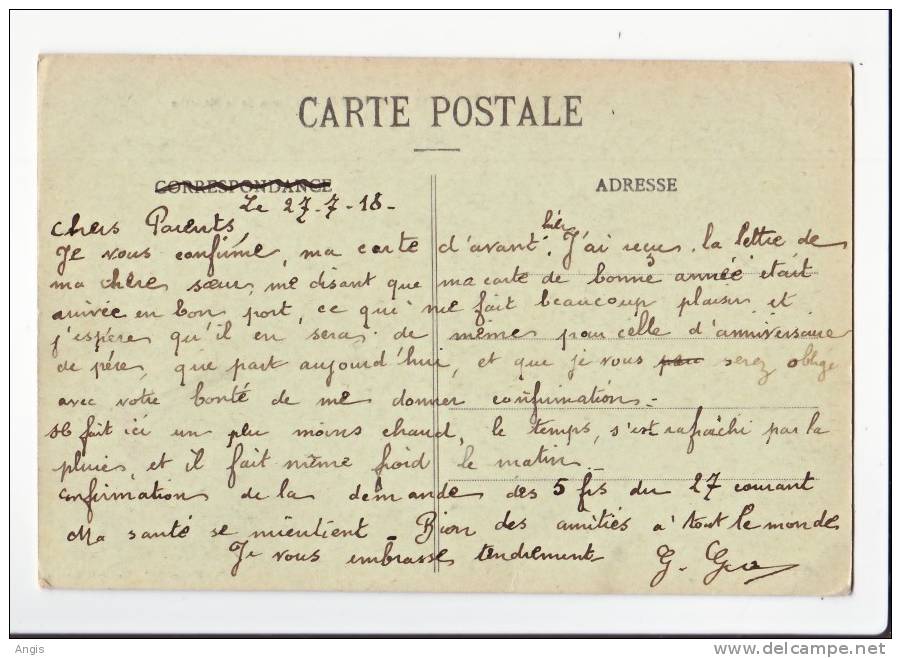 CARTE POSTALE
CORRESPONDANCE
ADRESSE
Le 27-7-18-
Chers Parents,
hier
Je vous confirme, ma carte d'avant. J'ai reçue la lettre de
ma chère sœur, me disant que ma carte de bonne année était
arrivée en bon port, ce qui me fait beaucoup plaisir et
j'espère qu'il en sera de même pour celle d'anniversaire
de père, que part aujourd'hui, et que je vous serez oblige
avec votre bonté de me donner confirmation -
Il fait ici un plu moins chaud, le temps, s'est rafraîchi par la
pluies, et il fait même froid le matin -
Confirmation de la demande des 5 frs du 27 courant
Ma santé se mientient - Bien des amitiés a' tout le monde
Je vous embrasse tendrement
G.
Angis
www.delcampe.net